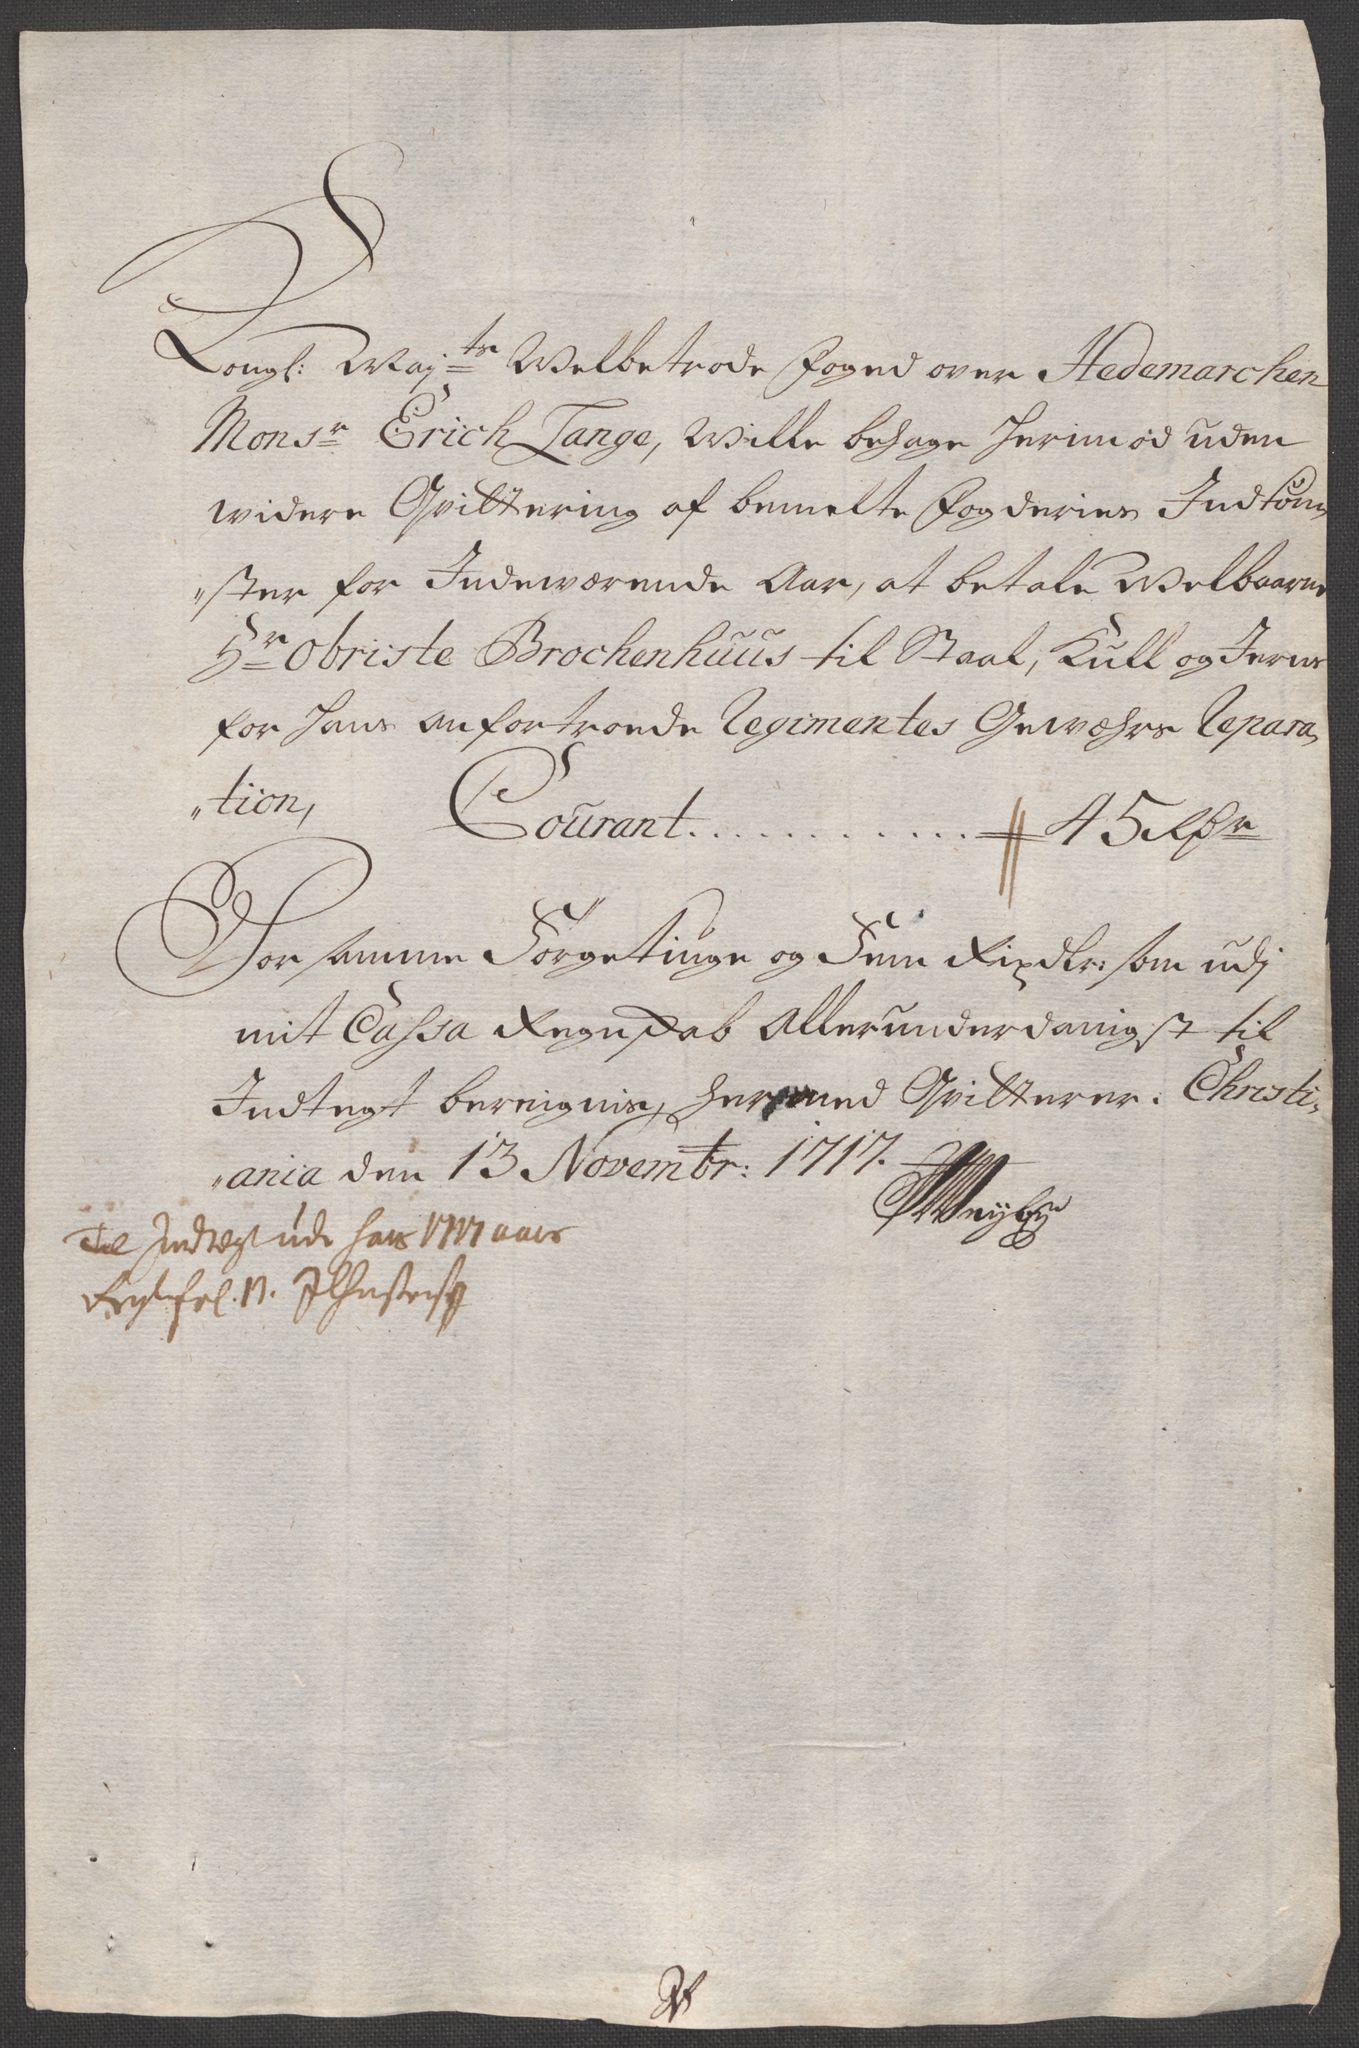 Kongl: May:ts Welbetrode foged over Hedemarchen
Monsr Erich Tange, Wille behage herimod uden
widere Qvittering af bemelte fogderies Indkom
"ster for Indeværende Aar, at betale Welbaarne
Hr Obriste Brochenhuus til Staal, Kull og Jern
for hans anfortroede Regimentes Gewehrs Repara
"tion,
Courant............45 Rdr
For samme Förgetiuge og Fem Rixdlr: som udj
mit Cassa Regnskab Allerunderdanigst til
Indtegt bereignis, hermed Qvitterer. Christi,
"ania den 13 Novembr: 1717.
Til Indtegt udi hans 1717 aars
fol. 17.